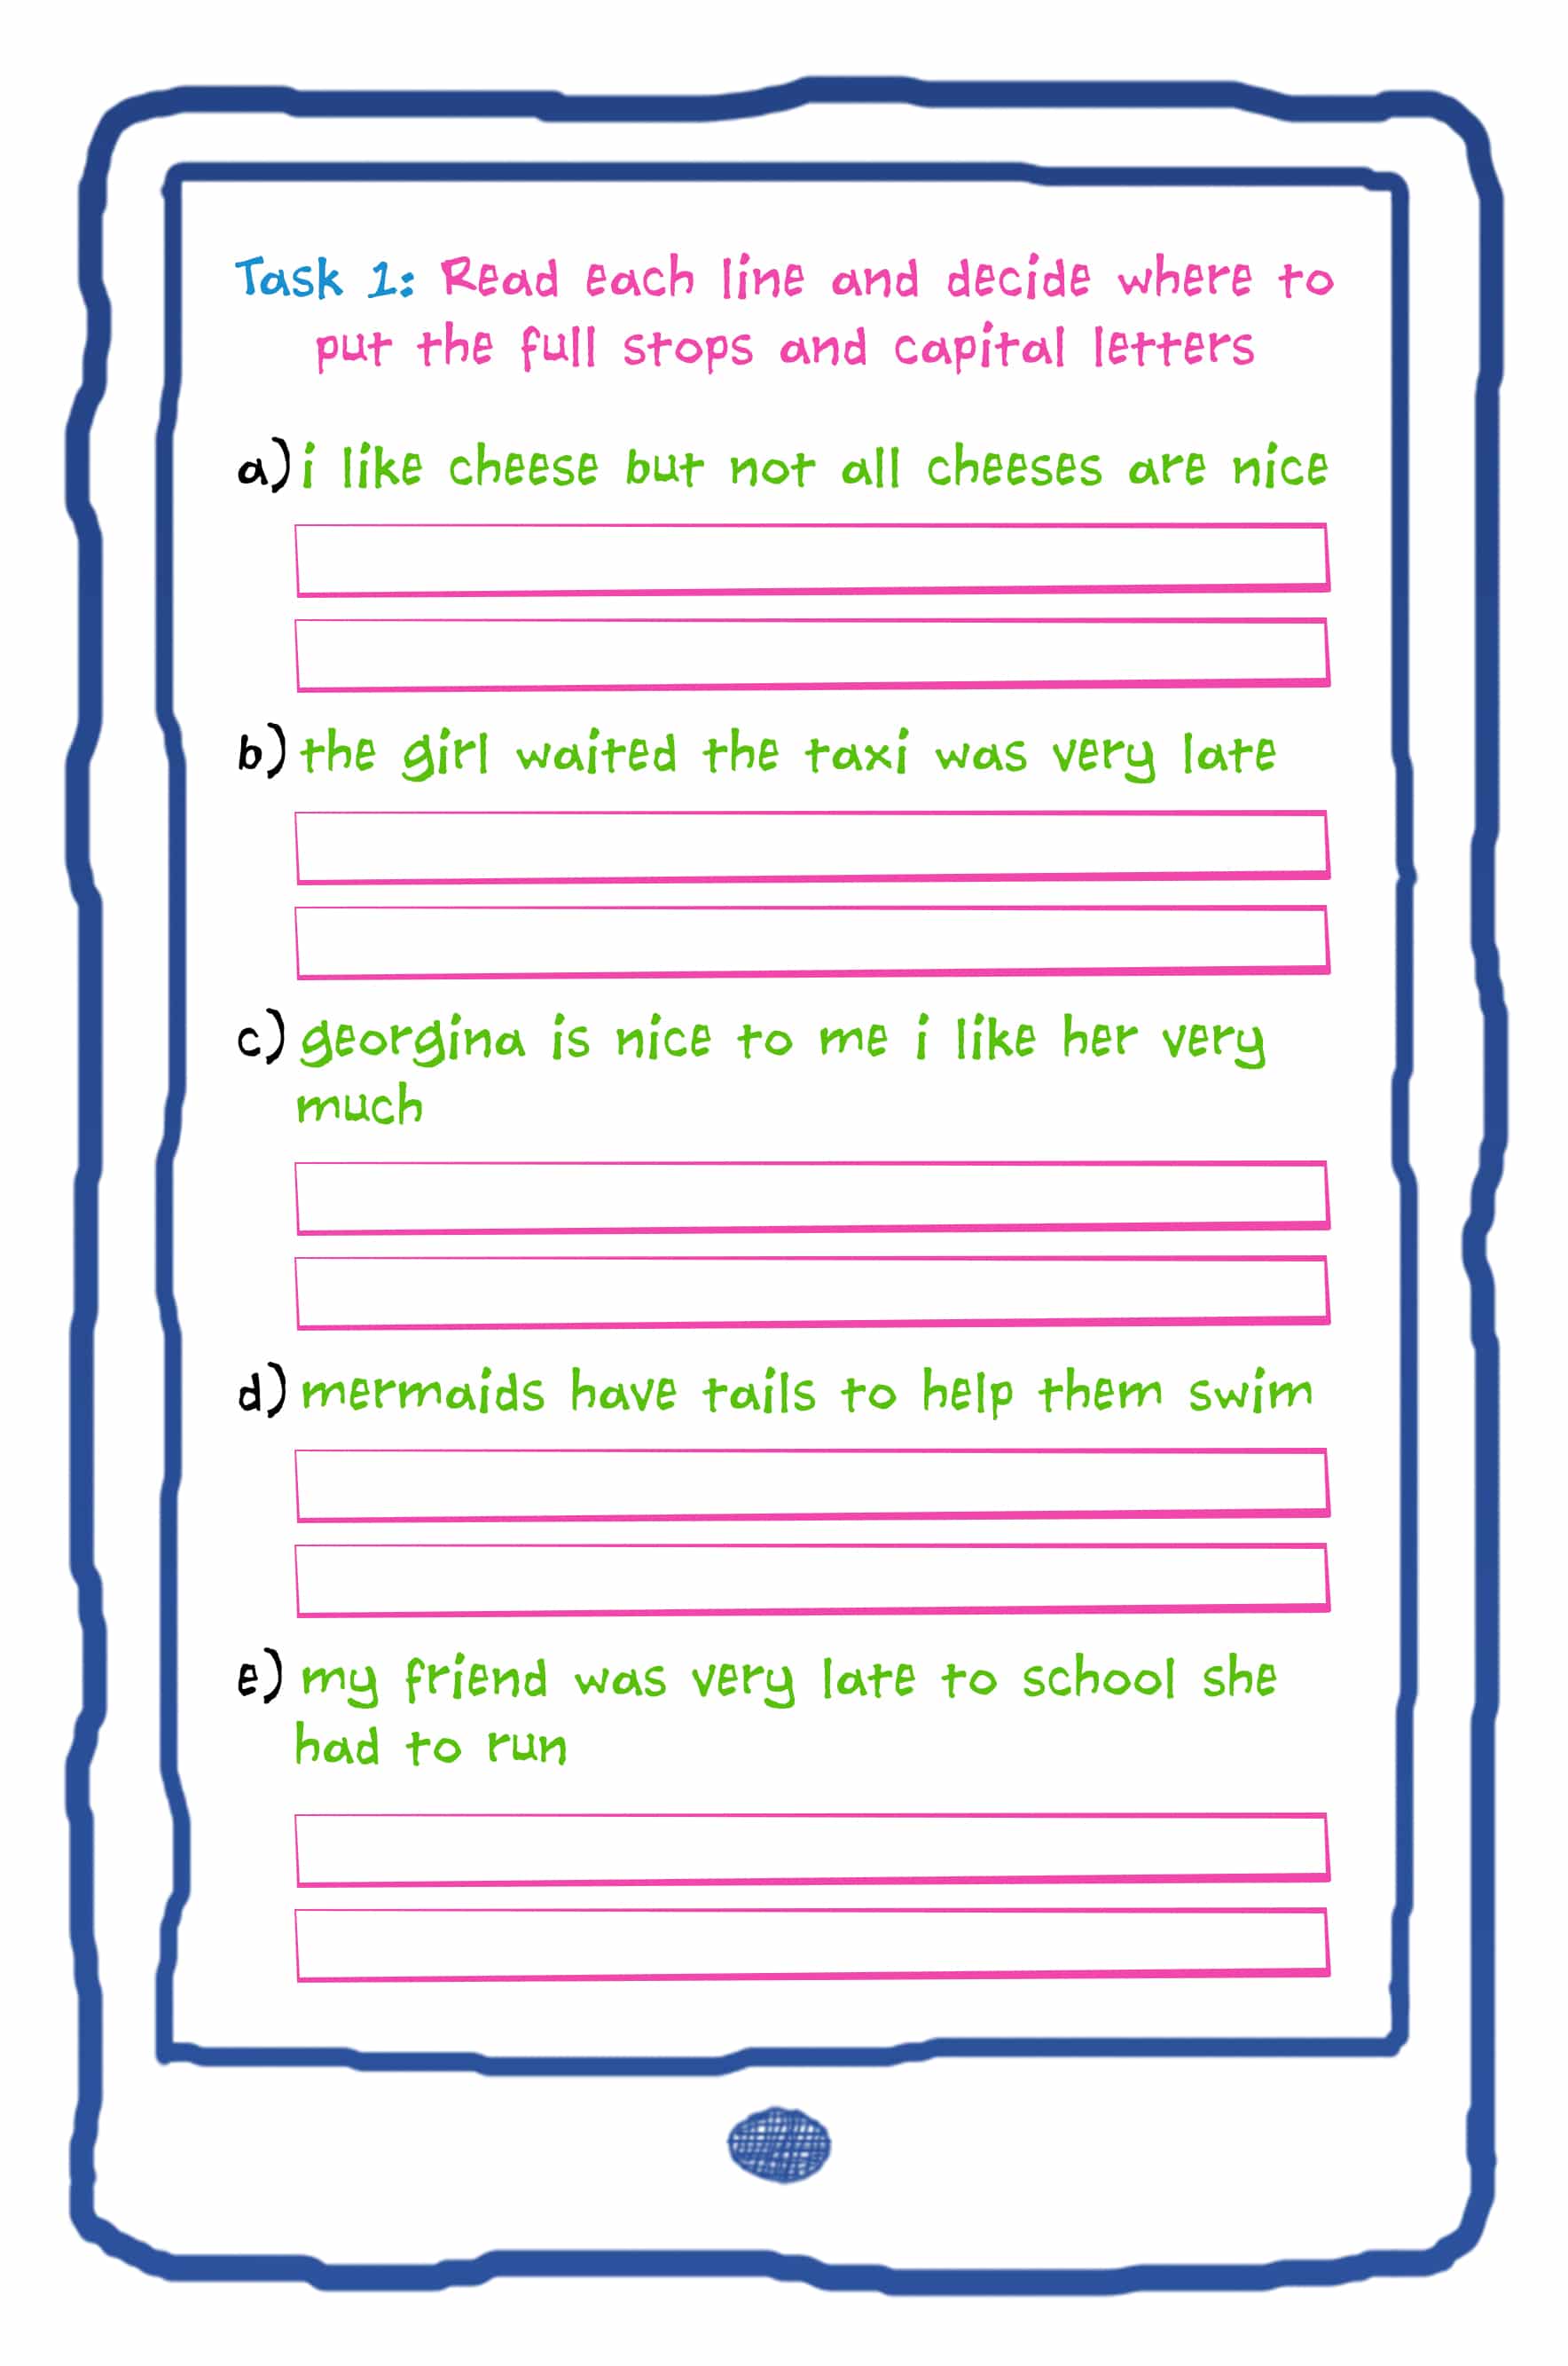 Task 1: Read each line and decide where to
put the full stops and capital letters
a) i like cheese but not all cheeses are nice
b) the girl waited the taxi was very late
c) georgina is nice to me i like her very
much
d) mermaids have tails to help them swim
e) my friend was very late to school she
had to run